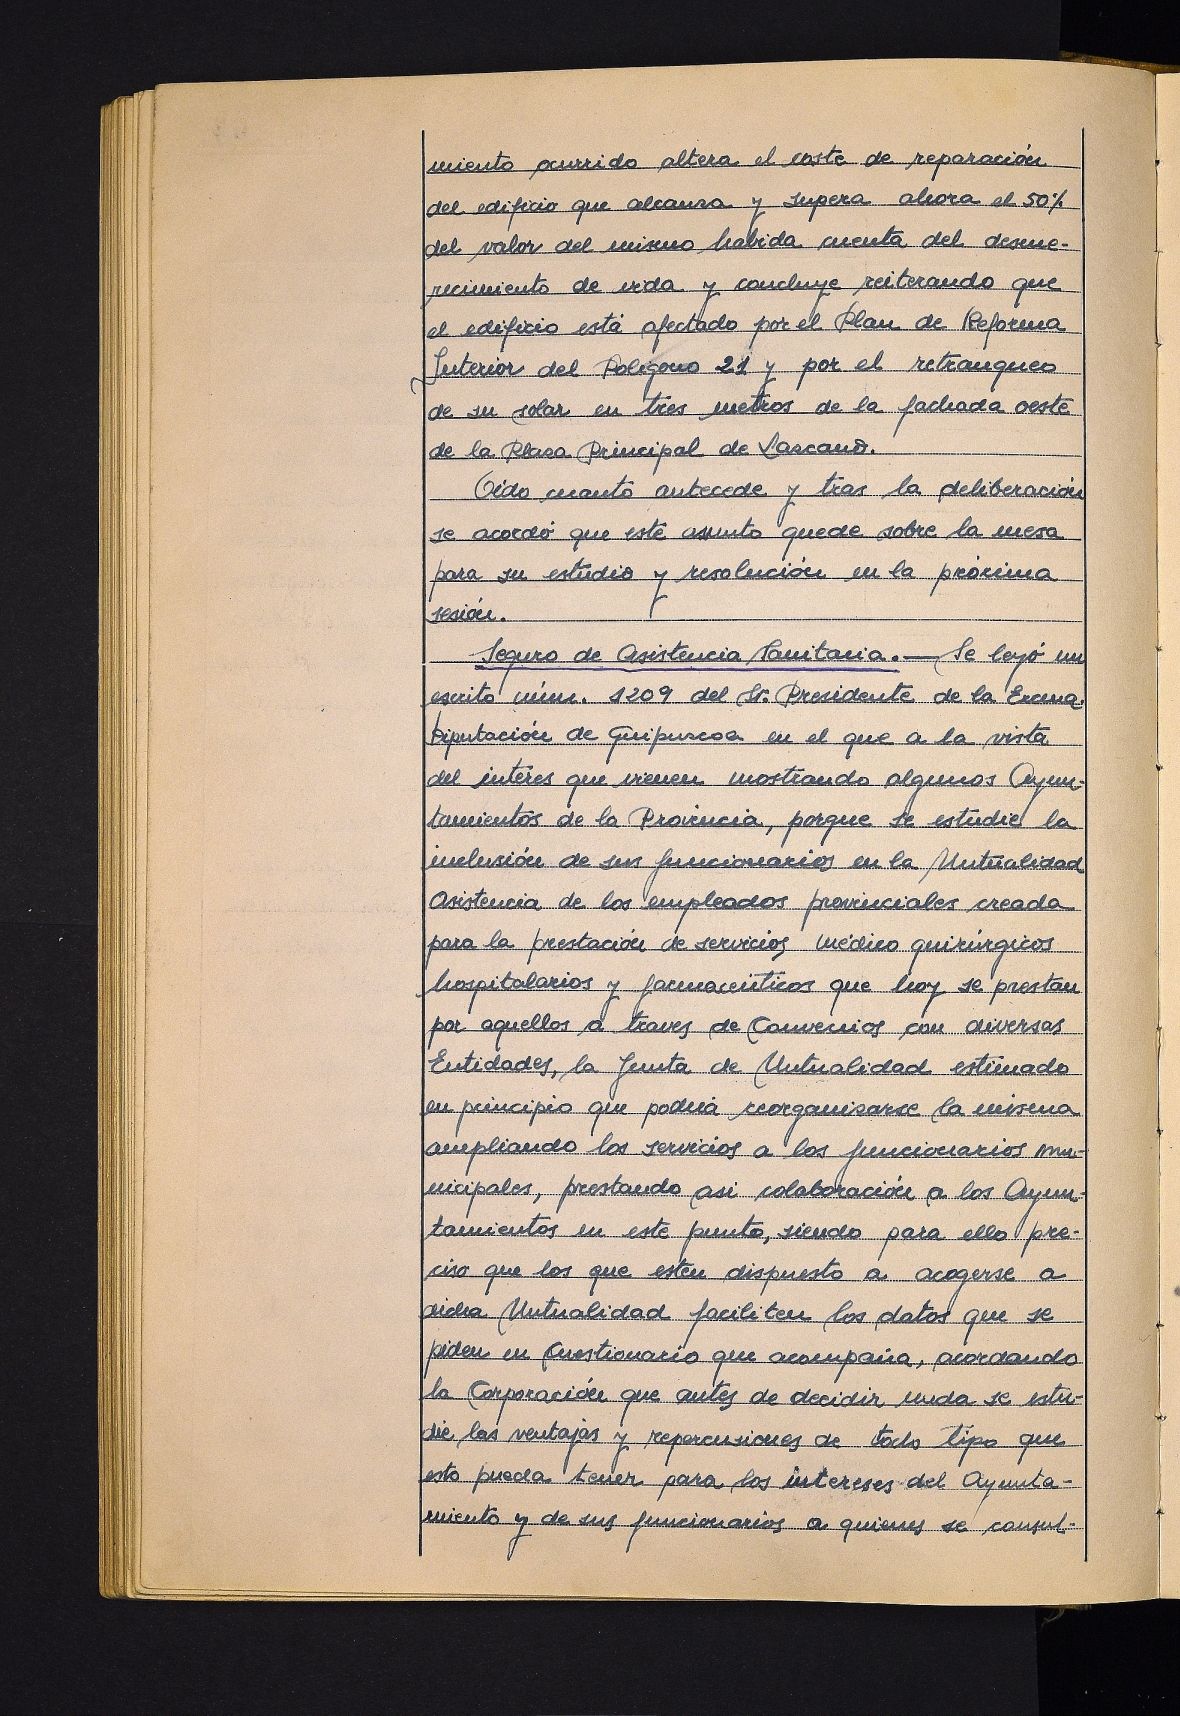 miento ocurrido altera el coste de reparación
del edificio que alcanza y supera ahora el 50%
del valor del mismo habida cuenta del desme-
recimiento de vida y concluye reiterando que
el edificio está afectado por el Plan de Reforma
Interior del Polígono 21 y por el retranqueo
de su solar en tres metros de la fachada oeste
de la Plaza Principal de Lazcano.
Oído cuanto antecede y tras la deliberación
se acordó que este asunto quede sobre la mesa
para su estudio y resolución en la próxima
sesión.
Seguro de Asistencia Sanitaria.— Se leyó un
escrito núm. 1209 del Sr. Presidente de la Excma.
Diputación de Guipuzcoa en el que a la vista
del interes que vienen mostrando algunos Ayun-
tamientos de la Provincia, porque se estudie la
inclusión de sus funcionarios en la Mutualidad
Asistencia de los empleados provinciales creada
para la prestación de servicios médico quirúrgicos
hospitalarios y farmaceúticos que hoy se prestan
por aquellos a traves de Convenios con diversas
Entidades, la Junta de Mutualidad estimado
en principio que podría reorganizarse la misma
ampliando los servicios a los funcionarios mu-
nicipales, prestando asi colaboración a los Ayun-
tamientos en este punto, siendo para ello pre-
ciso que los que esten dispuesto a acogerse a
dicha Mutualidad faciliten los datos que se
piden en Cuestionario que acompaña, acordando
la Corporación que antes de decidir nada se estu-
die las ventajas y repercusiones de todo tipo que
esto pueda tener para los intereses del Ayunta-
miento y de sus funcionarios a quienes se consul-